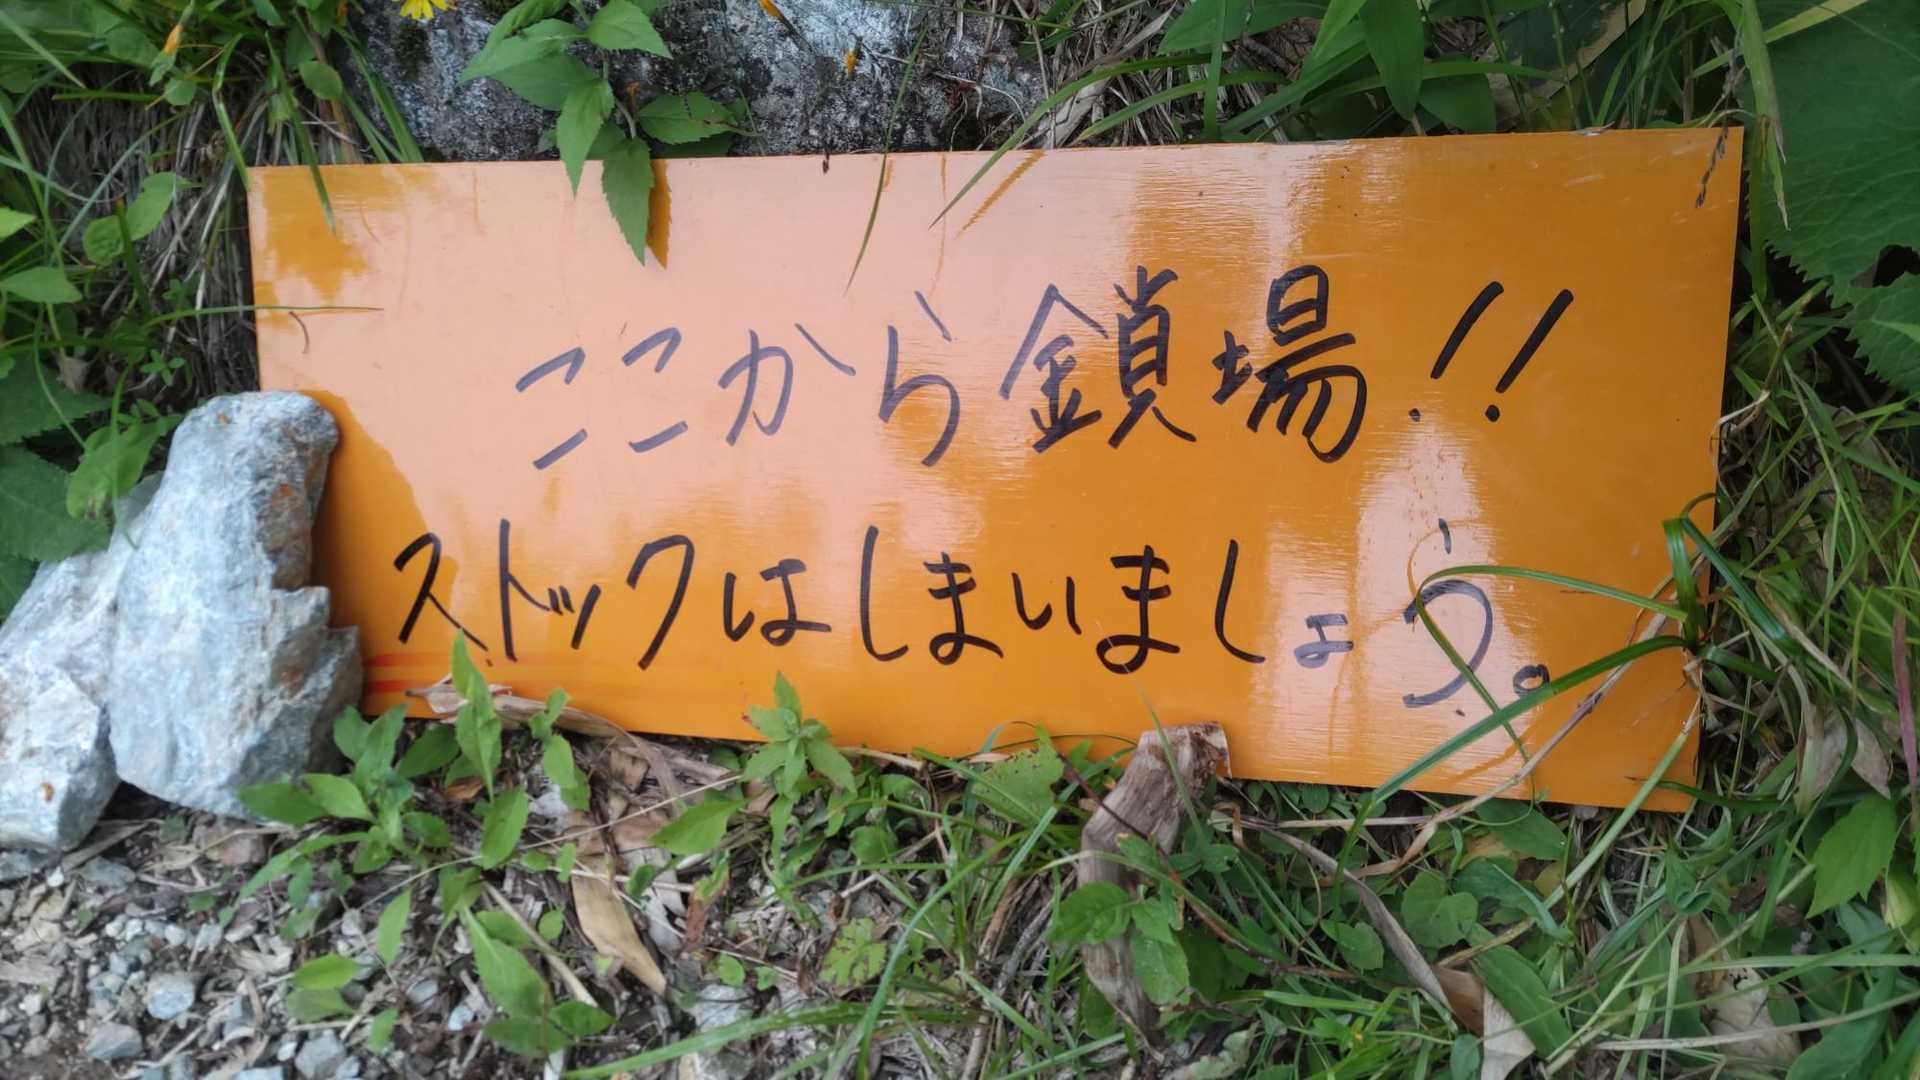 ここから鎖場!!
ストックはしまいましょう。